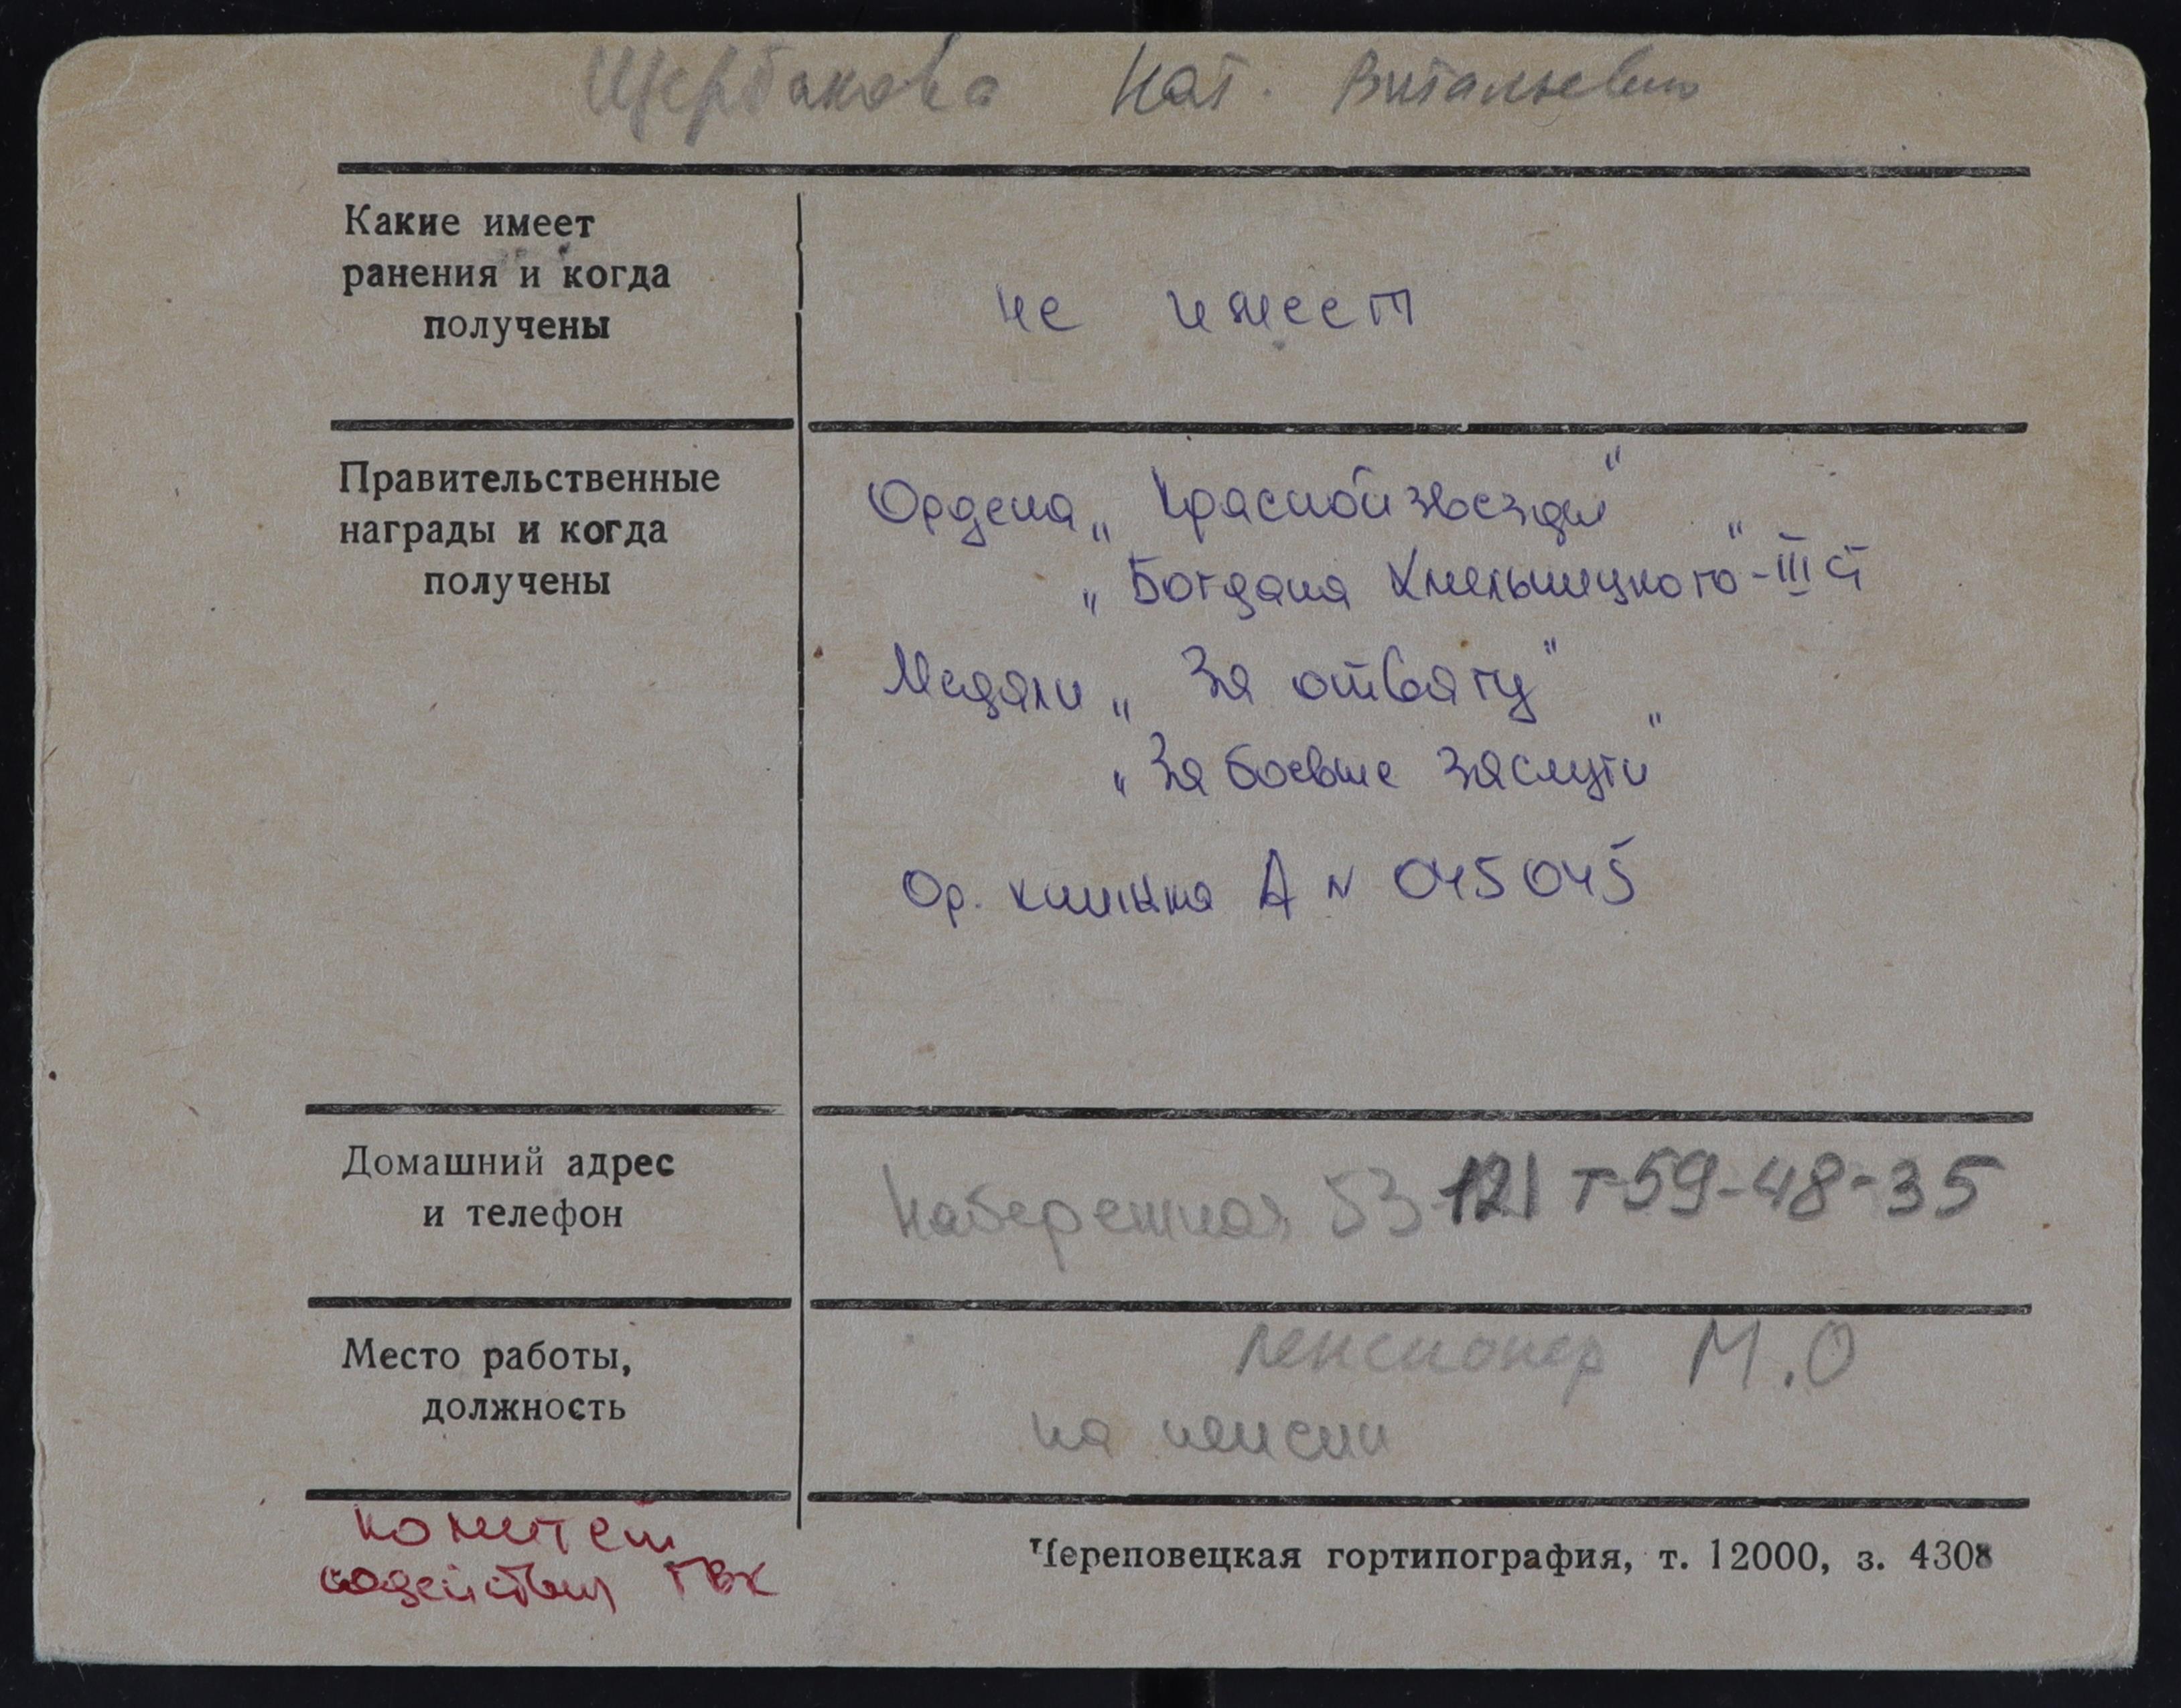 Щербакова Нат. Витальевна
Какие имеет
ранения и когда
получены
не имеет
Правительственные
награды и когда
получены
Ордена „Красной звезды"
„Богдана Хмельницкого"-III ст
Медали „За отвагу"
„За боевые заслуги"
Ор. книжка А N 045045
Домашний адрес
и телефон
Набережная 53-121 т-59-48-35
Место работы,
должность
пенсионер М.О
на пенсии
комитет
содействия ГВК
Череповецкая гортипография, т. 12000, з. 4308